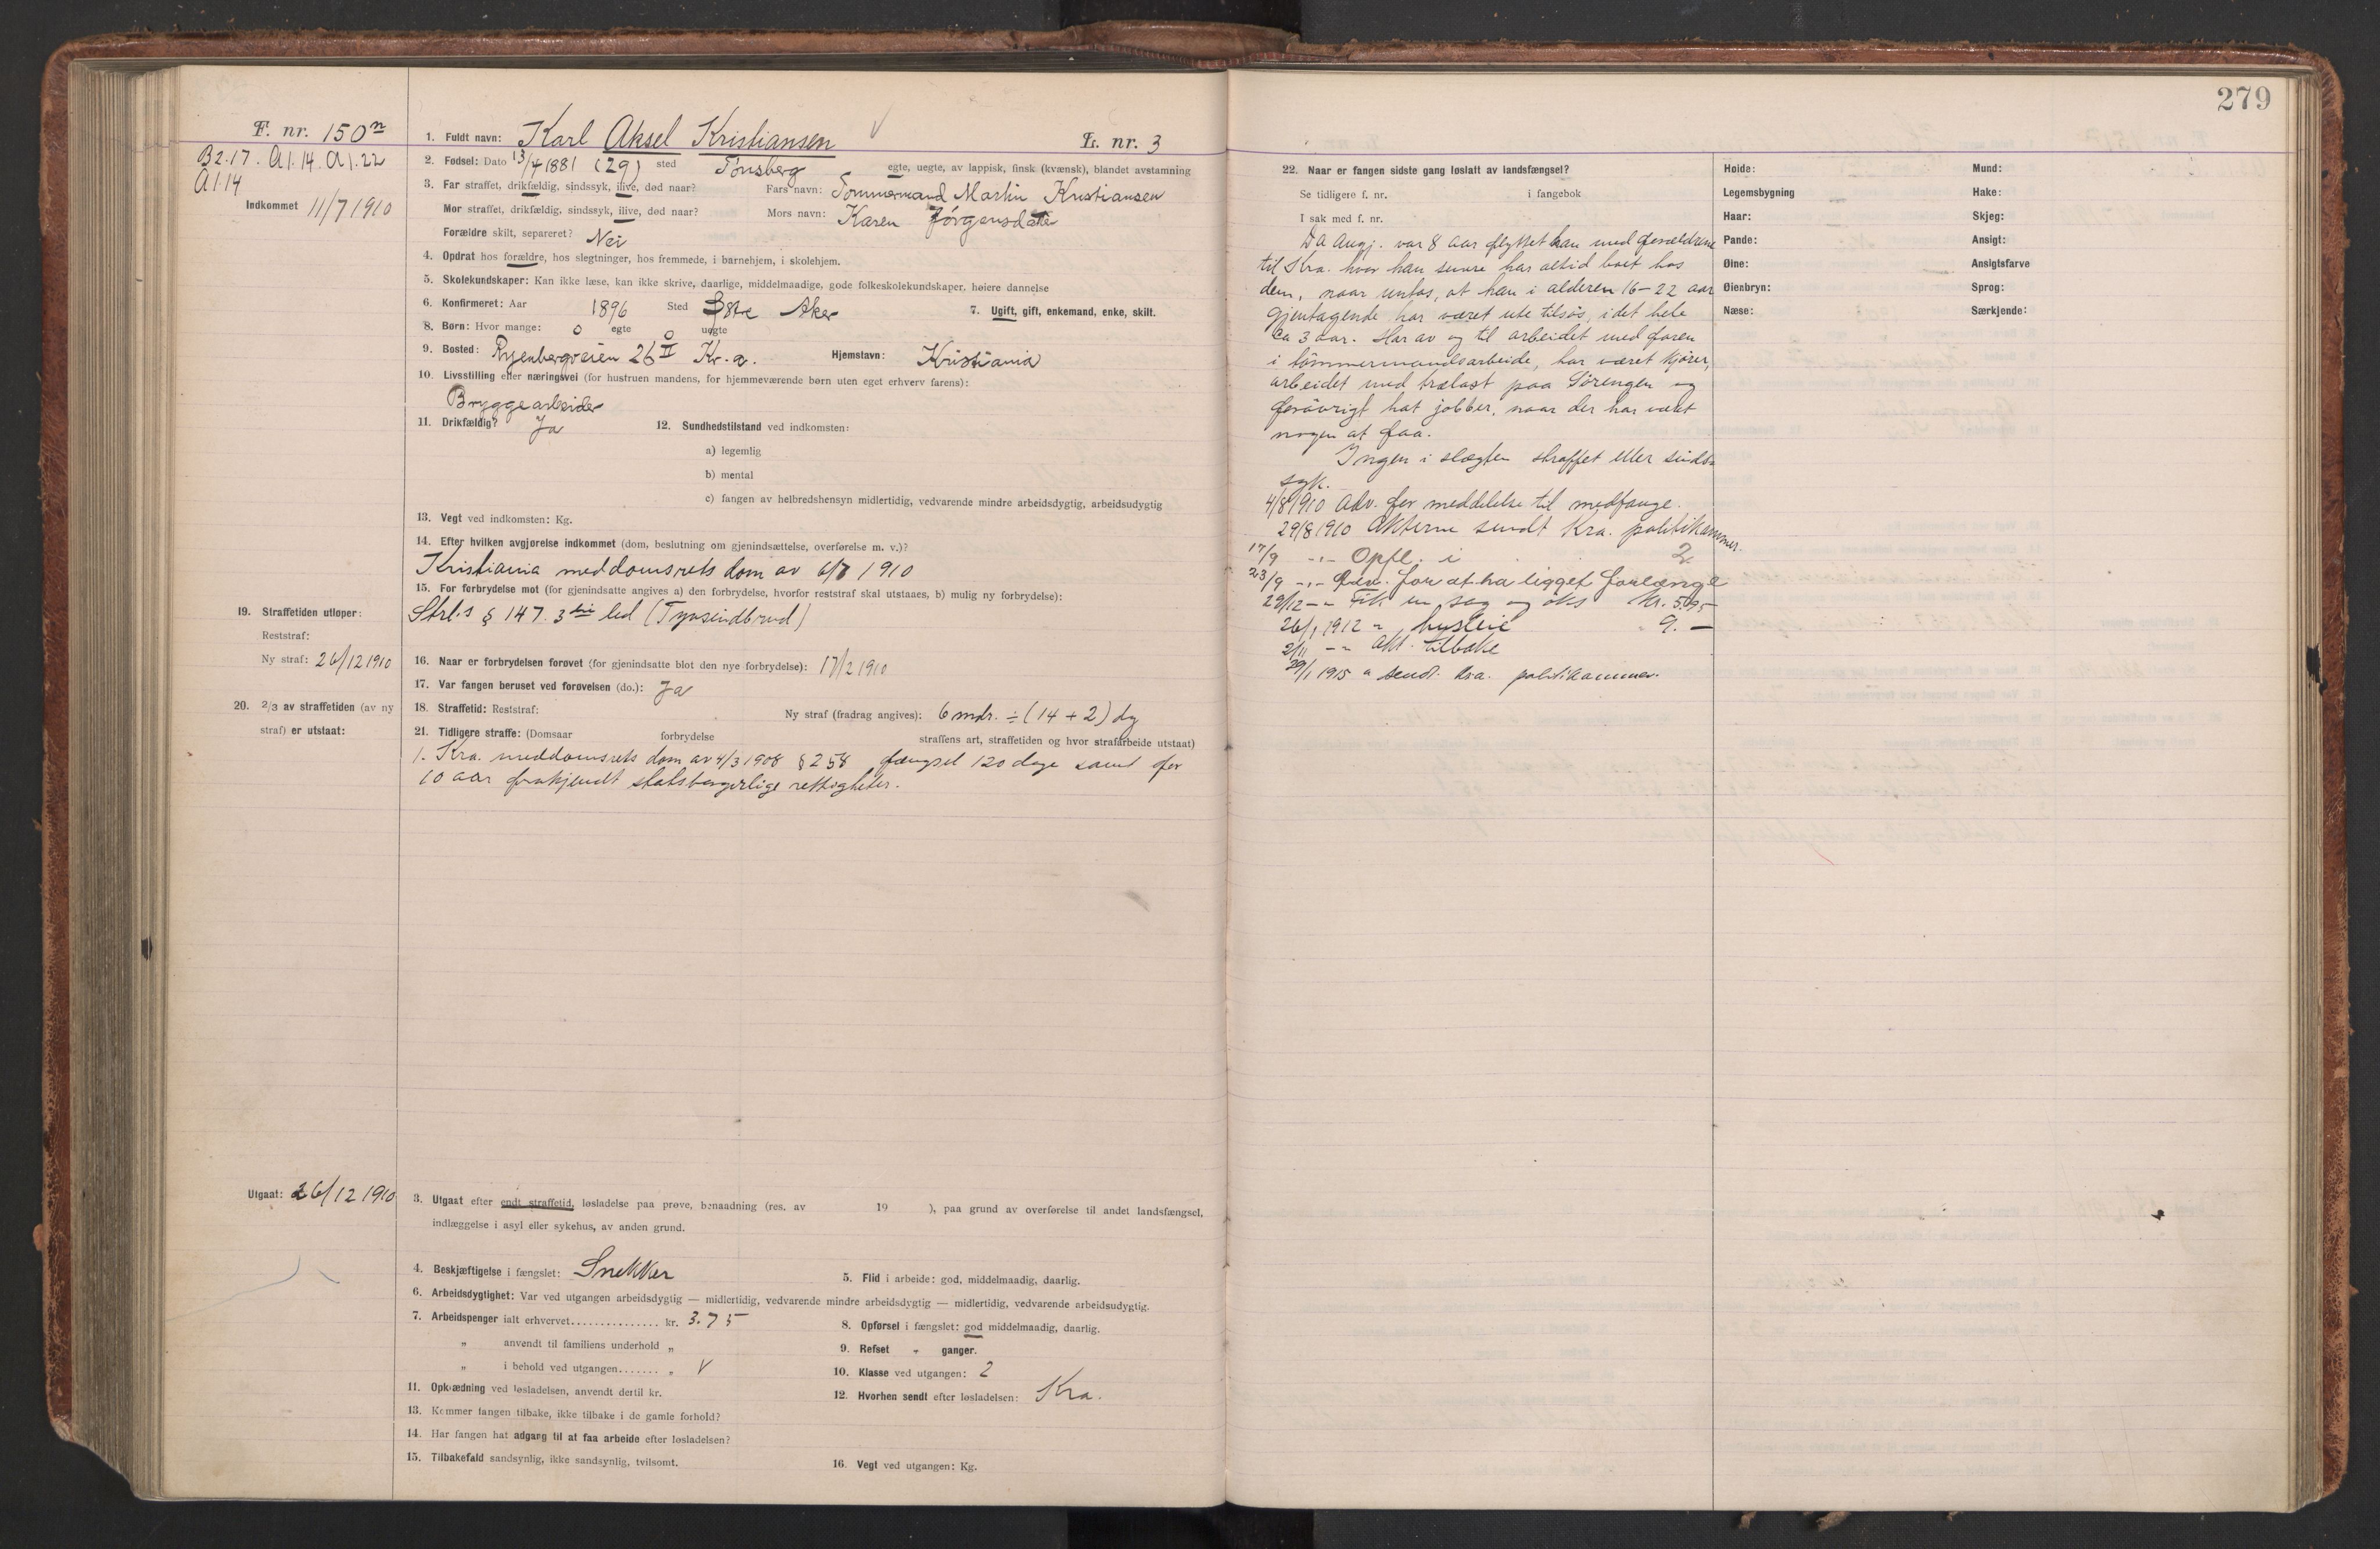 279
F. nr. 150n
B2.17. A1.14. A1.22
A1.14
Indkommet 11/7 1910
1. Fuldt navn: Karl Aksel Kristiansen L. nr. 3
2. Fødsel: Dato 13/4 1881 (29) sted Tønsberg egte, uegte, av lappisk, finsk (kvænsk), blandet avstamning
3. Far straffet, drikfældig, sindssyk, ilive, død naar? Fars navn: Tømmermand Martin Kristiansen
Mor straffet, drikfældig, sindssyk, ilive, død naar? Mors navn: Karen Jørgensdatter
Forældre skilt, separeret? Nei
4. Opdrat hos forældre, hos slegtninger, hos fremmede, i barnehjem, i skolehjem.
5. Skolekundskaper: Kan ikke læse, kan ikke skrive, daarlige, middelmaadige, gode folkeskolekundskaper, høiere dannelse
6. Konfirmeret: Aar 1896 Sted Østre Aker 7. Ugift, gift, enkemand, enke, skilt.
8. Børn: Hvor mange: 0 egte 0 uegte
9. Bosted: Ryenbergveien 26 II Kr.a. Hjemstavn: Kristiania
10. Livsstilling eller næringsvei (for hustruen mandens, for hjemmeværende børn uten eget erhverv farens):
Bryggearbeider
11. Drikfældig? Ja 12. Sundhedstilstand ved indkomsten:
a) legemlig
b) mental
c) fangen av helbredshensyn midlertidig, vedvarende mindre arbeidsdygtig, arbeidsudygtig
13. Vegt ved indkomsten: Kg.
14. Efter hvilken avgjørelse indkommet (dom, beslutning om gjenindsættelse, overførelse m. v.)?
Kristiania meddomsrets dom av 6/7 1910
15. For forbrydelse mot (for gjenindsatte angives a) den forbrydelse, hvorfor reststraf skal utstaaes, b) mulig ny forbrydelse):
Strl.s § 147. 3die led (Tyvsindbrud)
19. Straffetiden utløper:
Reststraf:
Ny straf: 26/12 1910
16. Naar er forbrydelsen forøvet (for gjenindsatte blot den nye forbrydelse): 17/2 1910
17. Var fangen beruset ved forøvelsen (do.): Ja
20. 2/3 av straffetiden (av ny
straf) er utstaat:
18. Straffetid: Reststraf: Ny straf (fradrag angives): 6 mdr. ÷ (14 + 2) dg
21. Tidligere straffe: (Domsaar forbrydelse straffens art, straffetiden og hvor strafarbeide utstaat)
1. Kra. meddomsrets dom av 4/3 1908 § 258 fængsel 120 dage samt for
10 aar frakjendt statsborgerlige rettigheter.
Utgaat: 26/12 1910
3. Utgaat efter endt straffetid, løsladelse paa prøve, benaadning (res. av 19 ), paa grund av overførelse til andet landsfængsel,
indlæggelse i asyl eller sykehus, av anden grund.
4. Beskjæftigelse i fængslet: Snekker 5. Flid i arbeide: god, middelmaadig, daarlig.
6. Arbeidsdygtighet: Var ved utgangen arbeidsdygtig — midlertidig, vedvarende mindre arbeidsdygtig — midlertidig, vedvarende arbeidsudygtig.
7. Arbeidspenger ialt erhvervet............... kr. 3.75 8. Opførsel i fængslet: god middelmaadig, daarlig.
„ anvendt til familiens underhold „ 9. Refset - ganger.
„ i behold ved utgangen....... „ 10. Klasse ved utgangen: 2
11. Opklædning ved løsladelsen, anvendt dertil kr. 12. Hvorhen sendt efter løsladelsen: Kra.
13. Kommer fangen tilbake, ikke tilbake i de gamle forhold?
14. Har fangen hat adgang til at faa arbeide efter løsladelsen?
15. Tilbakefald sandsynlig, ikke sandsynlig, tvilsomt. 16. Vegt ved utgangen: Kg.
22. Naar er fangen sidste gang løslatt av landsfængsel?
Se tidligere f. nr. i fangebok
I sak med f. nr.
Da Angj. var 8 aar flyttet han med forældrene
til Kra. hvor han senere har altid boet hos
dem, naar untas, at han i alderen 16–22 aar
gjentagende har været ute tilsøs, i det hele
ca 3 aar. Har av og til arbeidet med faren
i tømmermandsarbeide, har været kjører,
arbeidet med trælast paa Sørengen og
forøvrigt hat jobber, naar der har været
nogen at faa.
Ingen i slægten straffet eller sinds-
syk.
4/8 1910 Adv. for meddelelse til medfange.
29/8 1910 Akterne sendt Kra. politikammer.
17/9 -"- Opfl. i 2
23/9 -"- Adv. for at ha ligget forlænge
29/12 -"- Fik en sag og øks kr. 5.95
26/1 1912 " husleie " 9.—
2/11 -"- Akt. tilbake
29/1 1915 " sendt Kra. politikammer.
Høide: Mund:
Legemsbygning Hake:
Haar: Skjeg:
Pande: Ansigt:
Øine: Ansigtsfarve
Øienbryn: Sprog:
Næse: Særkjende: